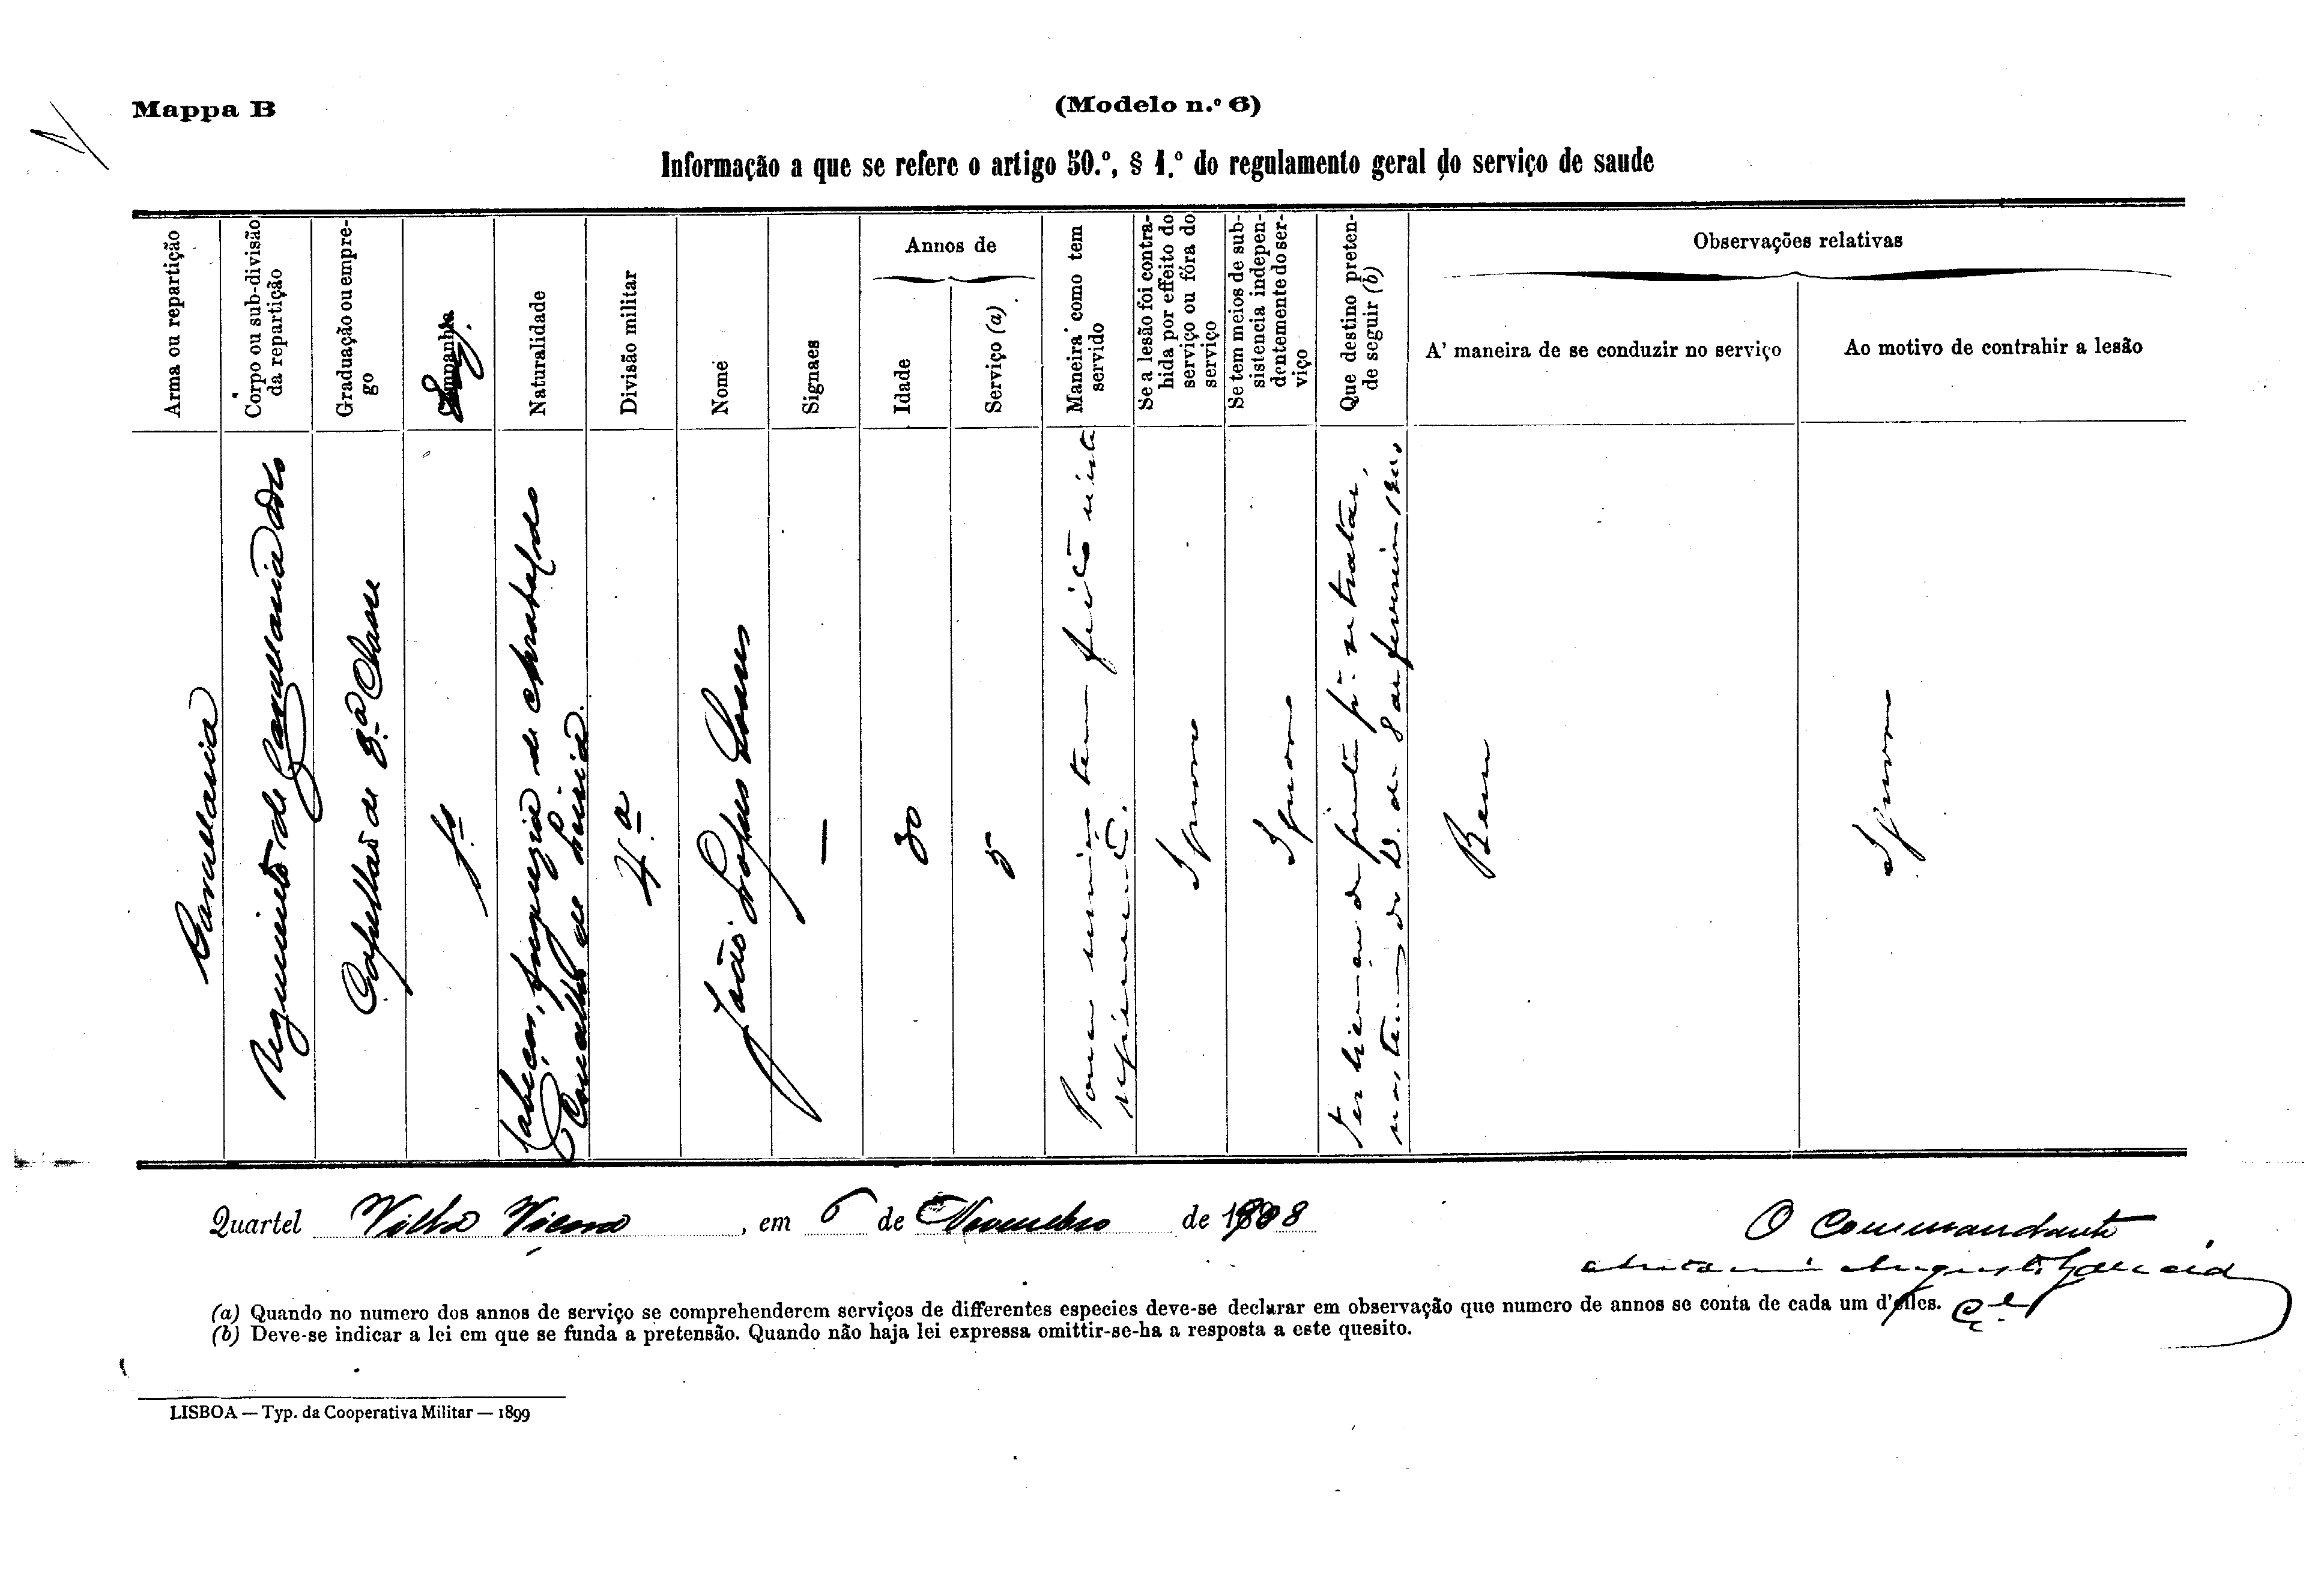 Mappa B
(Modelo n.º 6)
Informação a que se refere o artigo 50.º, § 1.º do regulamento geral do serviço de saude
Arma ou repartição
Corpo ou sub-divisão
da repartição
Graduação ou empre-
go
Companhia
Naturalidade
Divisão militar
Nome
Signaes
Annos de
Idade
Serviço (a)
Maneira como tem
servido
Se a lesão foi contra-
hida por effeito do
serviço ou fóra do
serviço
Se tem meios de sub-
sistencia indepen-
dentemente do ser-
viço
Que destino preten-
de seguir (b)
Observações relativas
A' maneira de se conduzir no serviço
Ao motivo de contrahir a lesão
Cavallaria
Regimento de Cavallaria
Capellão de 3.ª Classe
Cabeças, freguezia de
Concelho de Leiria.
4.ª
João Lopes Soares
—
30
5
Pouco serviço tem feito
Ignoro
Ignoro
Bem
Ignoro
Quartel Villa Viçosa, em 6 de Novembro de 1908
O Commandante
Augusto
C.el
(a) Quando no numero dos annos de serviço se comprehenderem serviços de differentes especies deve-se declarar em observação que numero de annos se conta de cada um d'elles.
(b) Deve-se indicar a lei em que se funda a pretensão. Quando não haja lei expressa omittir-se-ha a resposta a este quesito.
LISBOA — Typ. da Cooperativa Militar — 1899